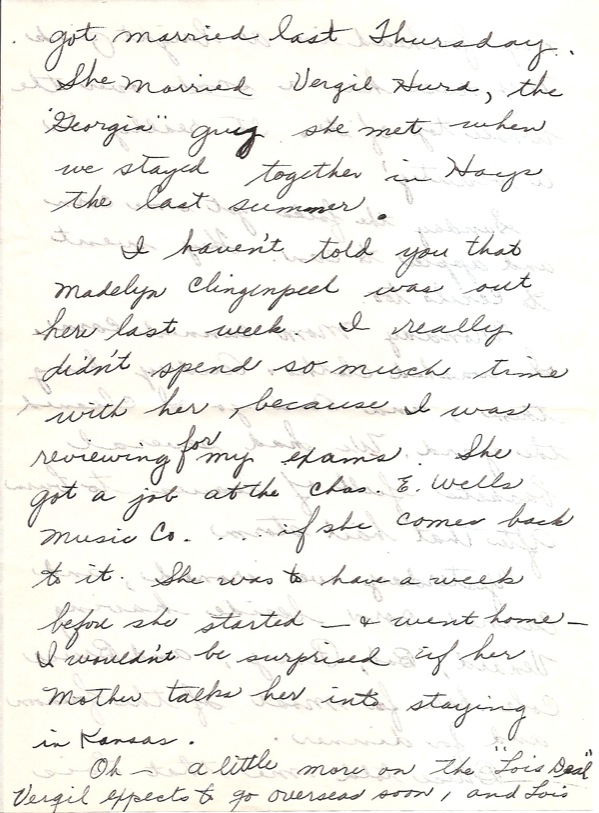 got married last Thursday.
She married Vergil Hurd, the
"Georgia" guy she met when
we stayed together in Hays
the last summer.
I haven't told you that
Madelyn Clingenpeel was out
here last week. I really
didn't spend so much time
with her, because I was
reviewing for my exams. She
got a job at the Chas. E. Wells
Music Co. .... if she comes back
to it. She was to have a week
before she started — & went home —
I wouldn't be surprised if her
Mother talks her into staying
in Kansas.
Oh — a little more on the "Lois Deal"
Vergil expects to go overseas soon, and Lois